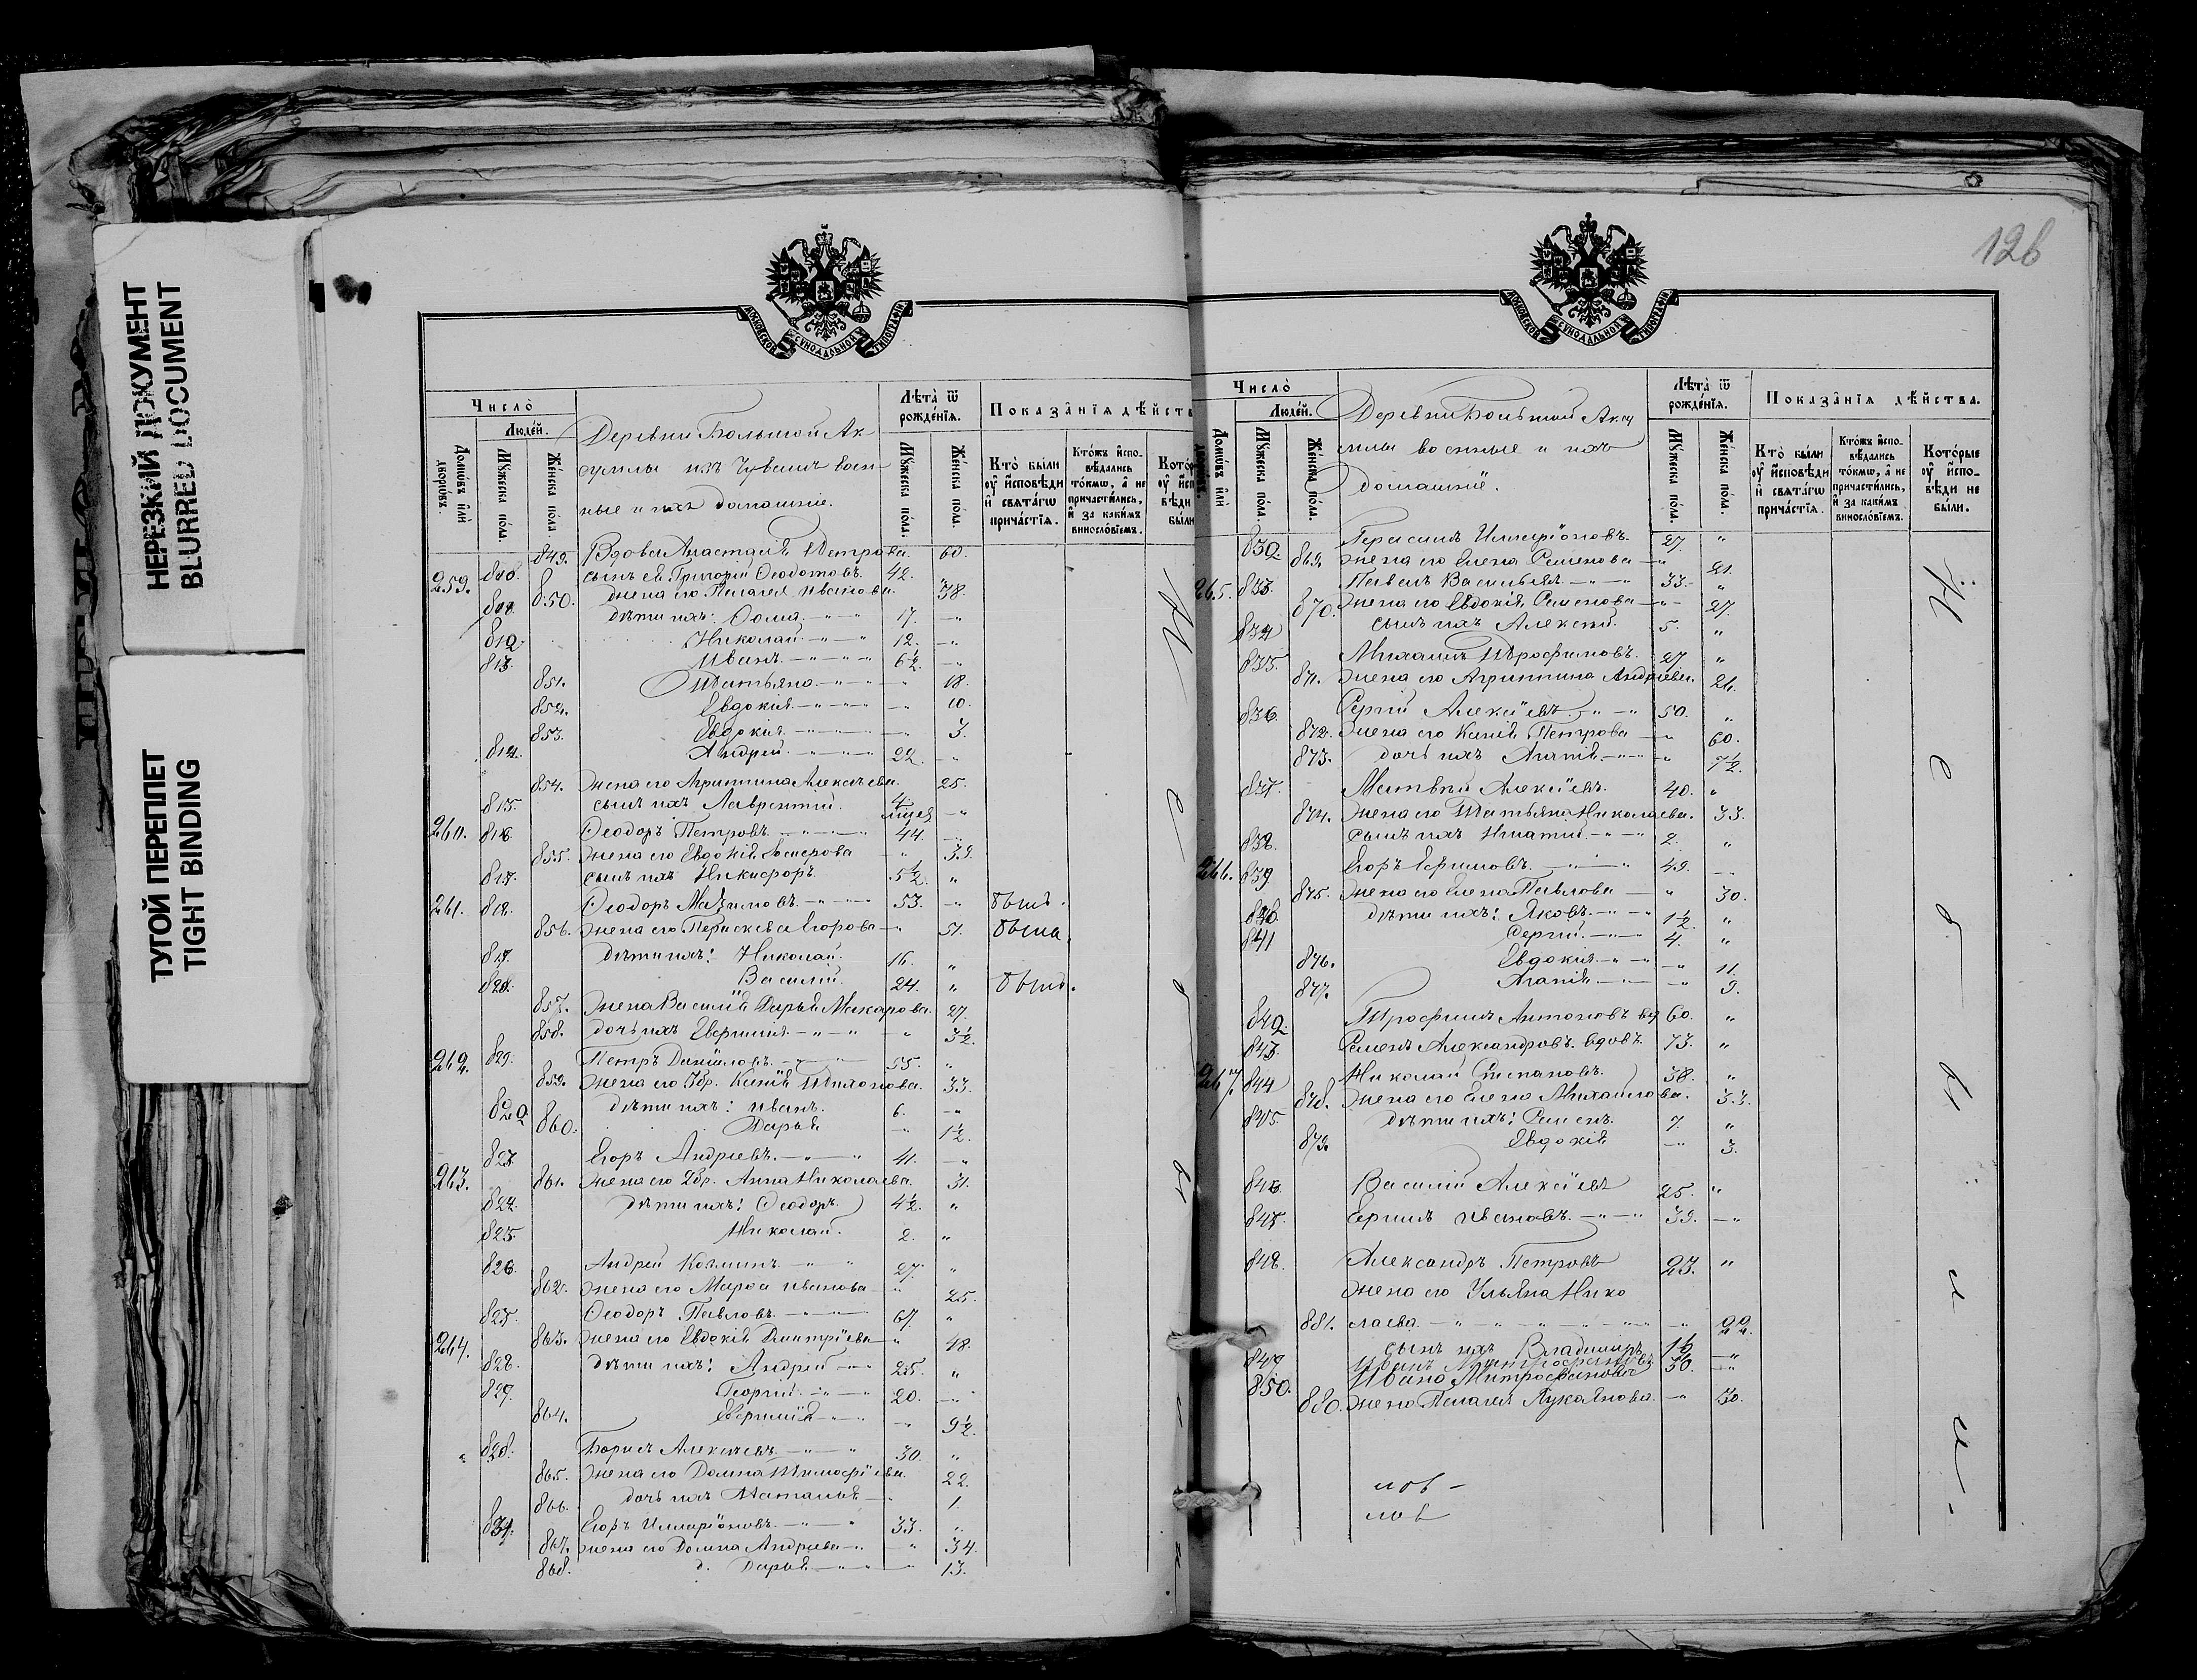 НЕРЕЗКИЙ ДОКУМЕНТ
BLURRED DOCUMENT
ТУГОЙ ПЕРЕПЛЕТ
TIGHT BINDING
МОСКОВСКОЙ СѴНОДАЛЬНОЙ ТИПОГРАФІИ
Число̀
Люде́й.
Домѡ́въ и҆лѝ дворѡ́въ.
Мꙋ́жеска по́ла.
Же́нска по́ла.
Деревни Большой Ак-
сумлы изъ Чувашъ воен-
ные и ихъ домашніе.
Лѣ́та ѿ рожде́нїѧ.
Мꙋ́жеска по́ла.
Же́нска по́ла.
Показа̂нїѧ дѣ́йств
Кто̀ бы́ли ᲂу҆ и҆сповѣ́ди и҆ свѧта́гѡ прича́стїѧ.
Кто́жъ и҆спо-вѣ́дались то́кмѡ, а҆ не причасти́лись, и҆ за каки́мъ винословїемъ.
849. Вдова Анастасія Петрова. 60.
259. 810. сынъ ея Григорій Ѳеодотовъ. 42.
850. жена его Пелагея Иванова. 38.
811. дѣти ихъ: Ѳома 17.
812 Николай 12.
813. Иванъ 6½.
851. Татьяна 18.
852. Евдокія 10.
853. Евдокія 3.
814. Андрей 22.
854. жена его Агриппина Алексѣева. 25.
815. сынъ ихъ Лаврентій. 4
260. 816 Ѳеодоръ Петровъ. 44.
855. жена его Евдокія 39.
817. сынъ ихъ Никифоръ. 5½.
261. 818. Ѳеодоръ Максимовъ. 53. былъ.
856. жена его Параскева Егорова 51. была.
819. дѣти ихъ: Николай. 16.
820. Василій. 24. былъ.
857. Жена Василія Дарья Макарова. 27.
858. дочь ихъ Евфимія 3½.
262. 821. Петръ Даніиловъ. 55.
859. жена его 2бр. Ксенія Тихонова. 33.
822 дѣти ихъ: Иванъ. 6.
860. Дарья 1½.
823. Егоръ Андреевъ. 41.
263. 861. жена его 2бр. Анна Николаева. 31.
824. дѣти ихъ: Ѳеодоръ. 4½.
825. Николай. 2.
826. Андрей Козминъ. 27.
862. жена его Марѳа Иванова 25.
827. Ѳеодоръ Павловъ. 67.
264. 863. жена его Евдокія Димитріева 48.
828. дѣти ихъ: Андрей 25.
829. Георгій. 20.
864. Евфимія 9½.
Борисъ Алексѣевъ. 30.
865. жена его Домна Тимоѳеева. 22.
866. дочь ихъ Наталья 1.
831. Егоръ Илларіоновъ. 33.
867. жена его Домна Андреева 34.
868. д. Дарья 13.
126
МОСКОВСКОЙ СѴНОДАЛЬНОЙ ТИПОГРАФІИ
Число̀
Люде́й.
Мꙋ́жеска по́ла.
Же́нска по́ла.
Деревни Большой Аксу
млы военные и ихъ
домашніе.
Лѣ́та ѿ рожде́нїѧ.
Мꙋ́жеска по́ла.
Же́нска по́ла.
Показа̂нїѧ дѣ́йства.
Кто̀ бы́ли ᲂу҆ и҆сповѣ́ди и҆ свѧта́гѡ прича́стїѧ.
Кто́жъ и҆спо-вѣ́дались то́кмѡ, а҆ не причасти́лись, и҆ за каки́мъ винословїемъ.
Кото́рые ᲂу҆ и҆спо-вѣ́ди не бы́ли.
832. Герасимъ Илларіоновъ. 27.
869. жена его Елена Семенова 21.
265. 833. Павелъ Васильевъ 33.
870. жена его Евдокія Семенова 27.
834 сынъ ихъ Алексѣй. 5.
835. Михаилъ Трофимовъ. 27
871. жена его Агриппина Андреева. 24.
836. Сергій Алексіевъ. 50.
872. жена его Ксенія Петрова 60.
873. дочь ихъ Агапія 7½.
837. Матвѣй Алексіевъ. 40.
874. жена его Татьяна Николаева. 33.
838. сынъ ихъ Игнатій. 2.
266. 839 Егоръ Ефимовъ. 49.
875. жена его Елена Павлова 30.
840. дѣти ихъ: Яковъ. 1½.
841 Сергій. 4.
876. Евдокія 11.
877. Агапія 9.
842. Трофимъ Антоновъ вд 60.
843. Семенъ Александровъ вдовъ. 73.
267. 844 Николай Степановъ. 38.
878. жена его Елена Михайлова. 33.
845. дѣти ихъ: Семенъ. 7.
879. Евдокія 3.
846. Василій Алексіевъ 25.
847. Ефимъ Ивановъ. 39.
848. Александръ Петровъ 23.
жена его Ульяна Нико
881. лаева 22.
849 сынъ ихъ Владиміръ 1½
850. Иванъ Митрофановъ 50.
880. жена Пелагея Лукоянова. 50.
Н е б ы л и.
лов -
лов